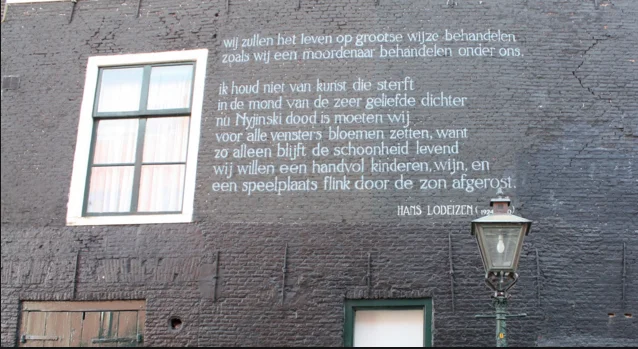 wij zullen het leven op grootse wijze behandelen
zoals wij een moordenaar behandelen onder ons.
ik houd niet van kunst die sterft
in de mond van de zeer geliefde dichter
nu Nyjinski dood is moeten wij
voor alle vensters bloemen zetten, want
zo alleen blijft de schoonheid levend
wij willen een handvol kinderen, wijn, en
een speelplaats flink door de zon afgerost.
HANS LODEIZEN